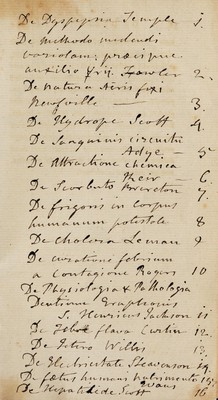 De Dyspepsia Temple 1.
De methodo medendi
variolam, præcipue
auxilio frig. Fowler 2.
De natura Aeris fixi
Newville 3.
De Hydrope Scott 4.
De Sanguinis circuitu
Adye 5
De Attractione chemica
Keir 6
De Scorbuto Brereton 7.
De frigoris in corpus
humanum potestate 8
De Cholera Leman 9
De curatione febrium
a contagione Rogers 10
De Physiologia & Pathologia
Dentium
S. Henricus Jackson 11
De flava Curtin 12.
De Ictero Willis 13.
De Electricitate Steavenson 14.
De fœtus humani nutrimento 15.
Evans
De Hepatitide Scott 16.